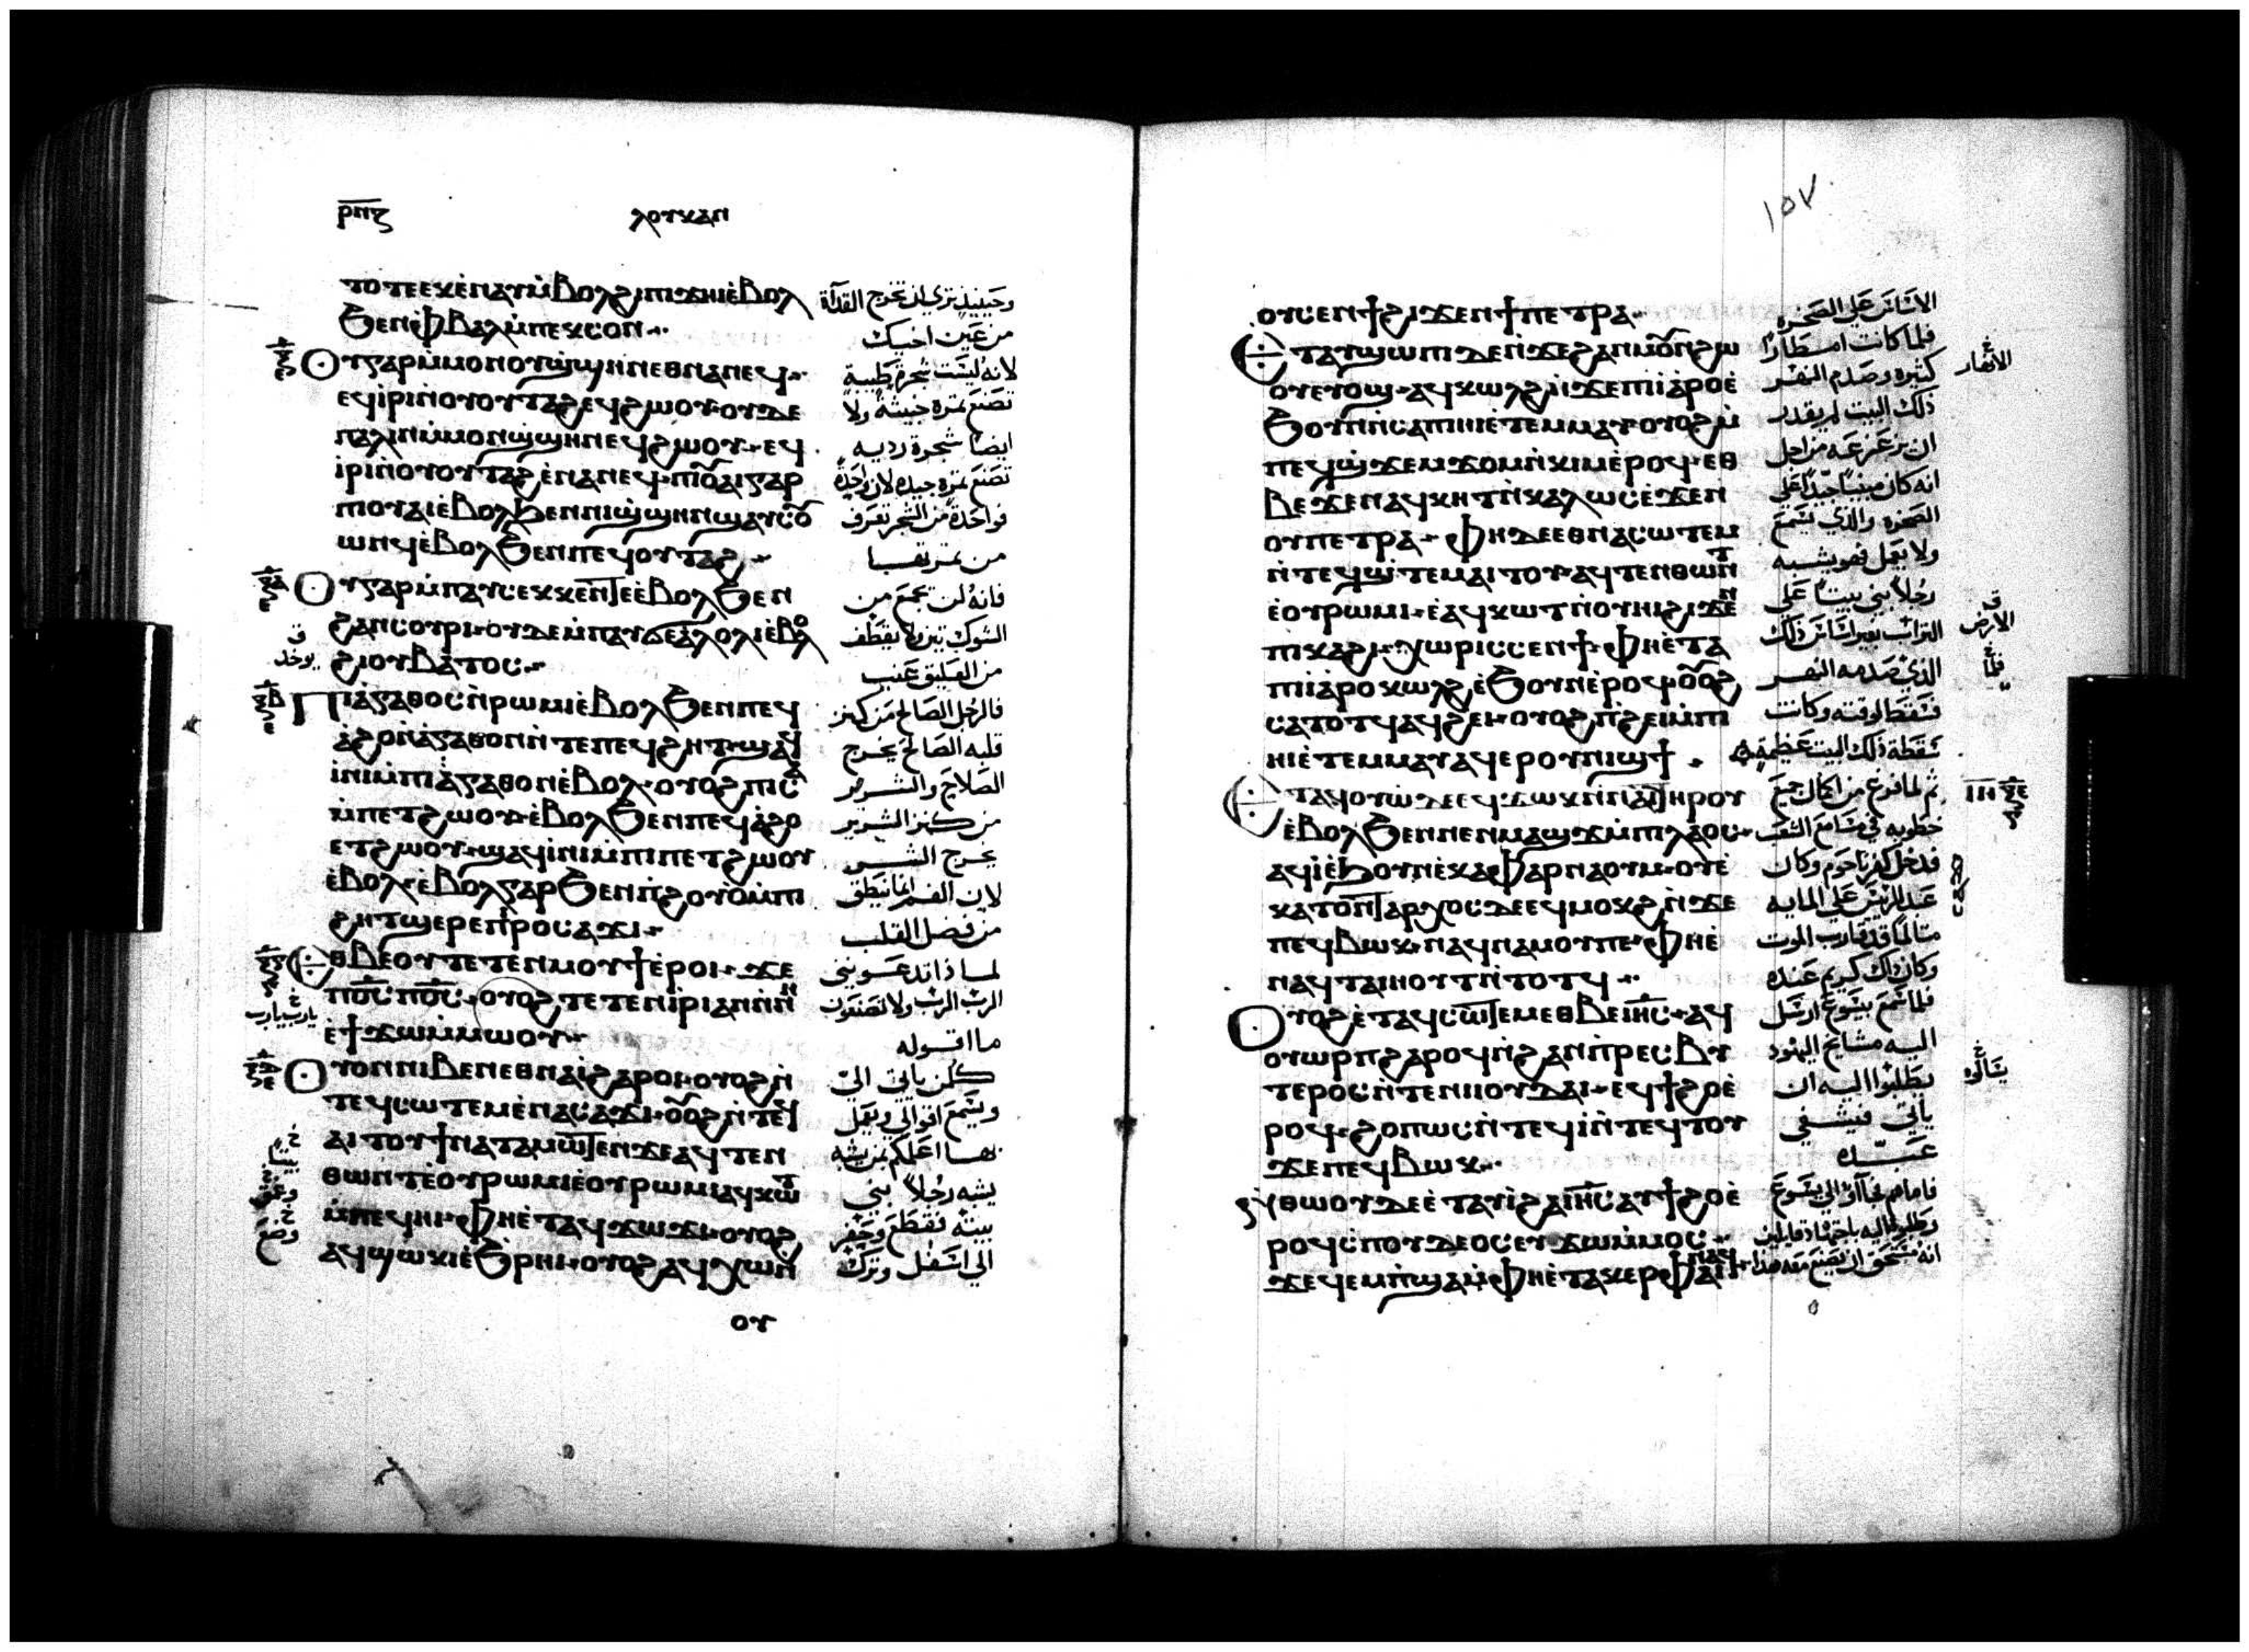 ⲣⲛⲍ ⲗⲟⲩⲕⲁⲛ
ⲧⲟⲧⲉⲉⲕⲉ̀ⲛⲁⲩⲙ̀ⲃⲟⲗϩⲓⲡⲓϫⲏⲓⲉ̀ⲃⲟⲗ
ϧⲉⲛⲫ̀ⲃⲁⲗⲙ̀ⲡⲉⲕⲥⲟⲛ
ⲟⲩⲅⲁⲣⲙ̀ⲙⲟⲛⲟⲩϣ̀ϣⲏⲛⲉⲑⲛⲁⲛⲉϥ
ⲉϥⲓ̀ⲣⲓⲛ̀ⲟⲩⲟⲩⲧⲁϩⲉϥϩⲱⲟⲩ·ⲟⲩⲇⲉ
ⲡⲁⲗⲓⲛⲙ̀ⲙⲟⲛϣ̀ϣⲏⲛⲉϥϩⲱⲟⲩ·ⲉϥ
ⲓ̀ⲣⲓⲛ̀ⲟⲩⲟⲩⲧⲁϩⲉ̀ⲛⲁⲛⲉϥ·ⲡⲓⲟ̅ⲁⲓⲅⲁⲣ
ⲡⲓⲟⲩⲁⲓⲉ̀ⲃⲟⲗϧⲉⲛⲛⲓϣ̀ϣⲏⲛϣⲁⲩⲥⲟ̅
ⲱⲛϥⲉ̀ⲃⲟⲗϧⲉⲛⲡⲉϥⲟⲩⲧⲁϩ
ⲟⲩⲅⲁⲣⲙ̀ⲡⲁⲩⲥⲉⲕⲕⲉⲛⲧⲉⲉ̀ⲃⲟⲗϧⲉⲛ
ϩⲁⲛⲥⲟⲩⲣⲓ·ⲟⲩⲇⲉⲙ̀ⲡⲁⲩϭⲉⲗⲁⲗⲟⲗⲓⲉ̀ⲃⲟⲗ
ϩⲓⲟⲩⲃⲁⲧⲟⲥ
ⲡⲓⲁ̀ⲅⲁⲑⲟⲥⲛ̀ⲣⲱⲙⲓⲉ̀ⲃⲟⲗϧⲉⲛⲡⲉϥ
ⲁ̀ϩⲟⲛ̀ⲁ̀ⲅⲁⲑⲟⲛⲛ̀ⲧⲉⲡⲉϥϩⲏⲧ·ϣⲁϥ
ⲓ̀ⲛⲓⲙ̀ⲡⲓⲁ̀ⲅⲁⲑⲟⲛⲉ̀ⲃⲟⲗ·ⲟⲩⲟϩⲡⲓⲥⲁ
ⲙ̀ⲡⲉⲧϩⲱⲟⲩ·ⲉ̀ⲃⲟⲗϧⲉⲛⲡⲉϥⲁ̀ϩⲟ
ⲉⲧϩⲱⲟⲩ·ϣⲁϥⲓ̀ⲛⲓⲙ̀ⲡⲓⲡⲉⲧϩⲱⲟⲩ
ⲉ̀ⲃⲟⲗ·ⲉ̀ⲃⲟⲗⲅⲁⲣϧⲉⲛⲡ̀ϩⲟⲩⲟ̀ⲙ̀ⲡⲓ
ϩⲏⲧϣⲉⲣⲉⲡ̀ⲣⲟⲥⲁϫⲓ
ⲉⲑⲃⲉⲟⲩⲧⲉⲧⲉⲛⲙⲟⲩϯⲉ̀ⲣⲟⲓ·ϫⲉ
ⲡⲟ̅ⲥ̅ⲡⲟ̅ⲥ̅·ⲟⲩⲟϩⲧⲉⲧⲉⲛⲓ̀ⲣⲓⲁⲛⲛ̀ⲛⲏ
ⲉ̀ϯϫⲱⲙ̀ⲙⲱⲟⲩ
ⲟⲩⲟⲛⲛⲓⲃⲉⲛⲉⲑⲛⲁⲓ̀ϩⲁⲣⲟⲓ·ⲟⲩⲟϩⲛ̀
ⲧⲉϥⲥⲱⲧⲉⲙⲉ̀ⲛⲁⲥⲁϫⲓ·ⲟ̅ⲟ̅ϩⲛ̀ⲧⲉϥ
ⲁⲓⲧⲟⲩϯⲛⲁⲧⲁⲙⲱⲧⲉⲛϫⲉⲁϥⲧⲉⲛ
ⲑⲱⲛⲧⲉ̀ⲟⲩⲣⲱⲙⲓⲉ̀ⲟⲩⲣⲱⲙⲓⲁϥⲕⲱⲧ
ⲙ̀ⲡⲉϥⲏⲓ·ⲫⲏⲉ̀ⲧⲁϥϫⲱϫⲓ·ⲟⲩⲟϩ
ⲁϥϣⲱⲕⲓⲉ̀ϧⲣⲏⲓ·ⲟⲩⲟϩⲁϥⲭⲱⲛ
ⲟⲩ
وحينيذ ترى ان تخرج القذاة
من عين اخيك
لانه ليست شجرة طيبة
تصنع ثمرة خبيثه ولا
ايضا شجرة رديه
تصنع ثمرة جيده لان واحدة
فواحدة من الشجر تعرف
من ثمرتها
فانه لن تجمع من
الشوك تين ولا يقطف
من العليق عنب
فالرجل الصالح من كنز
قلبه الصالح يخرج
الصلاح والشرير
من كنز الشرير
يخرج الشر
لان الفم انما ينطق
من فضل القلب
لماذا تدعوني
الرب الرب ولا تصنعون
ما اقوله
كل من ياتي الي
ويسمع اقوالي ويعمل
بها اعلمكم بمن يشبه
يشبه رجلا بنى
بيته فقطع وحفر
الى اسفل وترك
١٥٧
ⲟⲩⲥⲉⲛϯϩⲓϫⲉⲛϯⲡⲉⲧⲣⲁ
ⲉⲧⲁⲩϣⲱⲡⲓⲇⲉⲛ̀ϫⲉϩⲁⲛⲙⲟ̅ⲛϩⲱ
ⲟⲩⲉⲩⲟϣ·ⲁϥⲕⲱⲗϩⲛ̀ϫⲉⲡⲓⲁ̀ⲣⲟⲉ̀
ϧⲟⲩⲛⲛ̀ⲥⲁⲡⲓⲏⲓⲉ̀ⲧⲉⲙⲙⲁⲩ·ⲟⲩⲟϩⲙ̀
ⲡⲉϥϣ̀ϫⲉⲙϫⲟⲙⲛ̀ⲕⲓⲙⲉ̀ⲣⲟϥ·ⲉⲑ
ⲃⲉϫⲉⲛⲁϥⲕⲏⲧⲛ̀ⲕⲁⲗⲱⲥⲉ̀ϫⲉⲛ
ⲟⲩⲡⲉⲧⲣⲁ·ⲫⲏⲇⲉⲉⲑⲛⲁⲥⲱⲧⲉⲙ
ⲛ̀ⲧⲉϥϣ̀ⲧⲉⲙⲁⲓⲧⲟⲩ·ⲁϥⲧⲉⲛⲑⲱⲛⲧ
ⲉ̀ⲟⲩⲣⲱⲙⲓ·ⲉ̀ⲁϥⲕⲱⲧⲛ̀ⲟⲩⲏⲓϩⲓϫⲉⲛ
ⲡⲓⲕⲁϩⲓ·ⲭⲱⲣⲓⲥⲥⲉⲛϯ·ⲫⲏⲉ̀ⲧⲁ
ⲡⲓⲁ̀ⲣⲟⲕⲱⲗϩⲉ̀ϧⲟⲩⲛⲉ̀ⲣⲟϥ·ⲟ̅ⲟ̅ϩ
ⲥⲁⲧⲟⲧϥⲁϥϩⲉⲓ·ⲟⲩⲟϩⲡ̀ϩⲉⲓⲙ̀ⲡⲓ
ⲏⲓⲉ̀ⲧⲉⲙⲙⲁⲩⲁϥⲉⲣⲟⲩⲛⲓϣϯ
ⲉⲧⲁϥⲟⲩⲱ̀ⲇⲉⲉϥϫⲱⲕⲛ̀ⲛⲁⲓⲧⲏⲣⲟⲩ
ⲉ̀ⲃⲟⲗϧⲉⲛⲛⲉⲛⲙⲁϣϫⲙ̀ⲡⲓⲗⲁⲟⲥ
ⲁϥⲓ̀ⲉ̀ϧⲟⲩⲛⲉ̀ⲕⲁⲫⲁⲣⲛⲁⲟⲩⲙ·ⲟⲩⲉ̀
ⲕⲁⲧⲟⲛⲧⲁⲣⲭⲟⲥⲇⲉⲉϥⲙⲟⲕϩⲛ̀ϫⲉ
ⲡⲉϥⲃⲱⲕ·ⲛⲁϥⲛⲁⲙⲟⲩⲡⲉ·ⲫⲏⲉ̀
ⲛⲁϥⲧⲁⲓⲏⲟⲩⲧⲛ̀ⲧⲟⲧϥ
ⲟⲩⲟϩⲉ̀ⲧⲁϥⲥⲱⲧⲉⲙⲉⲑⲃⲉⲓⲏ̅ⲥ̅·ⲁϥ
ⲟⲩⲱⲣⲡϩⲁⲣⲟϥⲛ̀ϩⲁⲛⲡ̀ⲣⲉⲥⲃⲩ
ⲧⲉⲣⲟⲥⲛ̀ⲧⲉⲛⲓⲟⲩⲇⲁⲓ·ⲉϥϯϩⲟⲉ̀
ⲣⲟϥ·ϩⲟⲡⲱⲥⲛ̀ⲧⲉϥⲓ̀ⲛ̀ⲧⲉϥⲧⲟⲩ
ϫⲉⲡⲉϥⲃⲱⲕ
ⲛ̀ⲑⲱⲟⲩⲇⲉⲉ̀ⲧⲁⲩⲓ̀ϩⲁⲓⲏ̅ⲥ̅ⲁⲩϯϩⲟⲉ̀
ⲣⲟϥⲥⲡⲟⲩⲇⲉⲟⲥⲉⲩϫⲱⲙ̀ⲙⲟⲥ
ϫⲉϥⲉⲙⲡ̀ϣⲁⲙ̀ⲫⲏⲉ̀ⲧⲁⲕⲉⲣⲫⲁⲓⲛⲁϥ
الاساس على الصخره
فلما كانت امطارا
كثيره وصدم النهر
ذلك البيت لم يقدر
ان يزعزعه من اجل
انه كان مبنيا جيدا على
الصخره والذي يسمع
ولا يعمل فهو يشبه
رجلا بنى بيتا على
التراب بغير اساس ذلك
الذي صدمه النهر
فسقط لوقته وكانت
سقطة ذلك البيت عظيمة
ثم لما فرغ من اكمال جميع
خطوبه في مسامع الشعب
فدخل كفرناحوم وكان
عبد لرييس على المايه
متالما قد قارب الموت
وكان ذلك كريم عنده
فلما سمع بيسوع ارسل
اليه مشايخ اليهود
يطلبوا اليه ان
ياتي فيشفي
عبده
فاما هم لما اتوا الى يسوع
وطلبوا اليه باجتهاد قايلين
انه مستحق ان تصنع معه هذا
الانهار
الارض
فلما
يسالوه